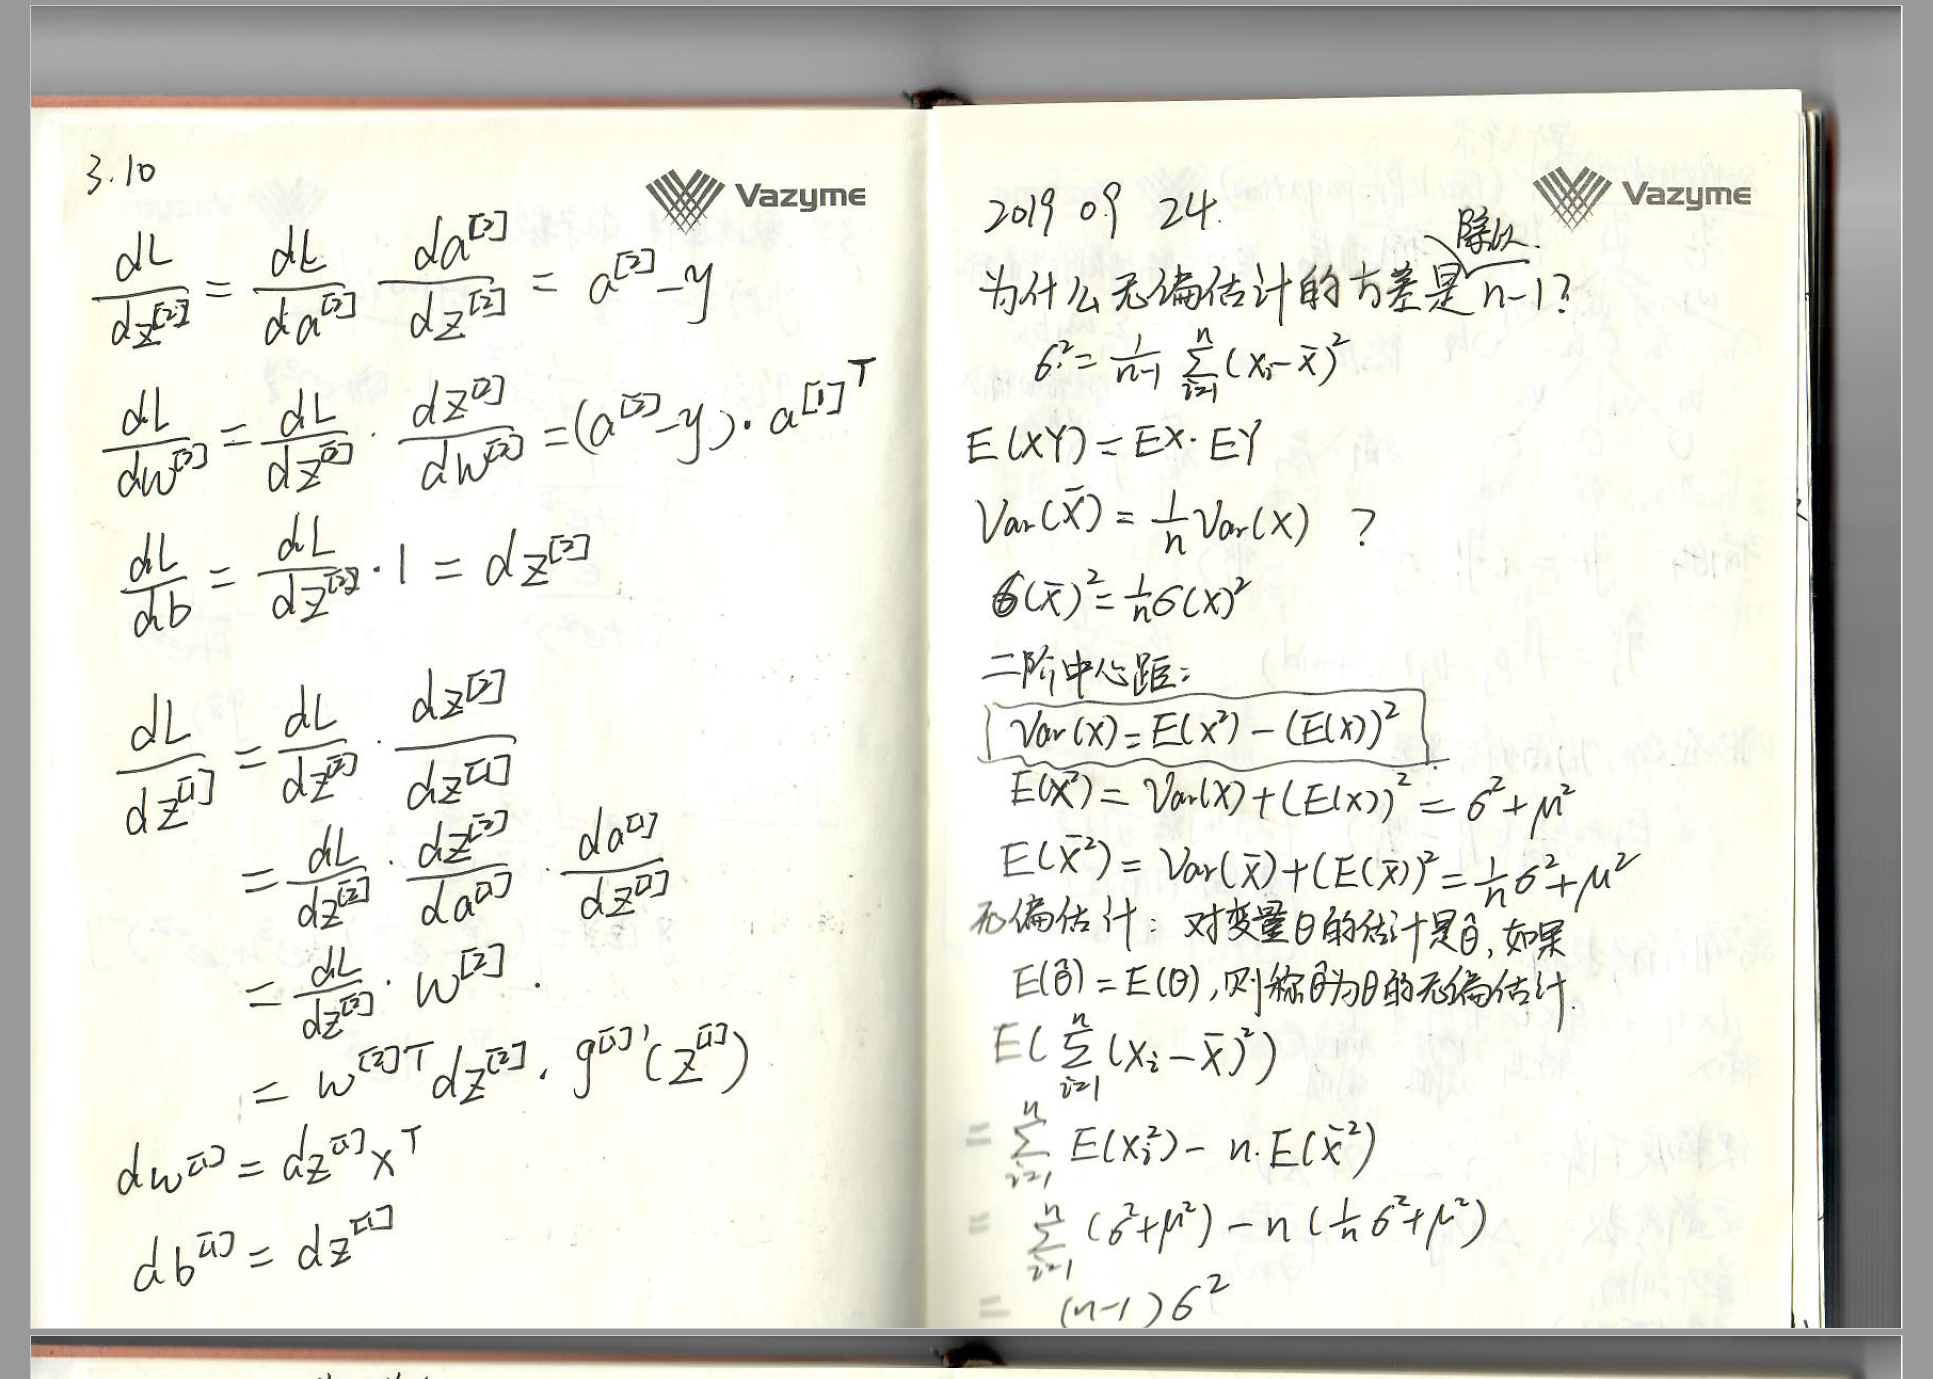 3.10
Vazyme
dL/dz^[2] = dL/da^[2] da^[2]/dz^[2] = a^[2] - y
dL/dw^[2] = dL/dz^[2] · dz^[2]/dw^[2] = (a^[2] - y) · a^[1]T
dL/db = dL/dz^[2] · 1 = dz^[2]
dL/dz^[1] = dL/dz^[2] · dz^[2]/dz^[1]
= dL/dz^[2] · dz^[2]/da^[1] · da^[1]/dz^[1]
= dL/dz^[2] · w^[2] ·
= w^[2]T dz^[2] · g^[1]'(z^[1])
dw^[1] = dz^[1] x^T
db^[1] = dz^[1]
Vazyme
2019 09 24.
除以.
为什么无偏估计的方差是n-1?
σ² = 1/(n-1) Σ_{i=1}^n (xᵢ - x̄)²
E(XY) = EX · EY
Var(X̄) = 1/n Var(X) ?
σ(x̄)² = 1/n σ(x)²
二阶中心距:
Var(x) = E(x²) - (E(x))²
E(x²) = Var(x) + (E(x))² = σ² + μ²
E(x̄²) = Var(x̄) + (E(x̄))² = 1/n σ² + μ²
无偏估计: 对变量θ的估计是θ̂, 如果
E(θ̂) = E(θ), 则称θ̂为θ的无偏估计.
E(Σ_{i=1}^n (xᵢ - x̄)²)
= Σ_{i=1}^n E(xᵢ²) - n·E(x̄²)
= Σ_{i=1}^n (σ² + μ²) - n(1/n σ² + μ²)
= (n-1)σ²